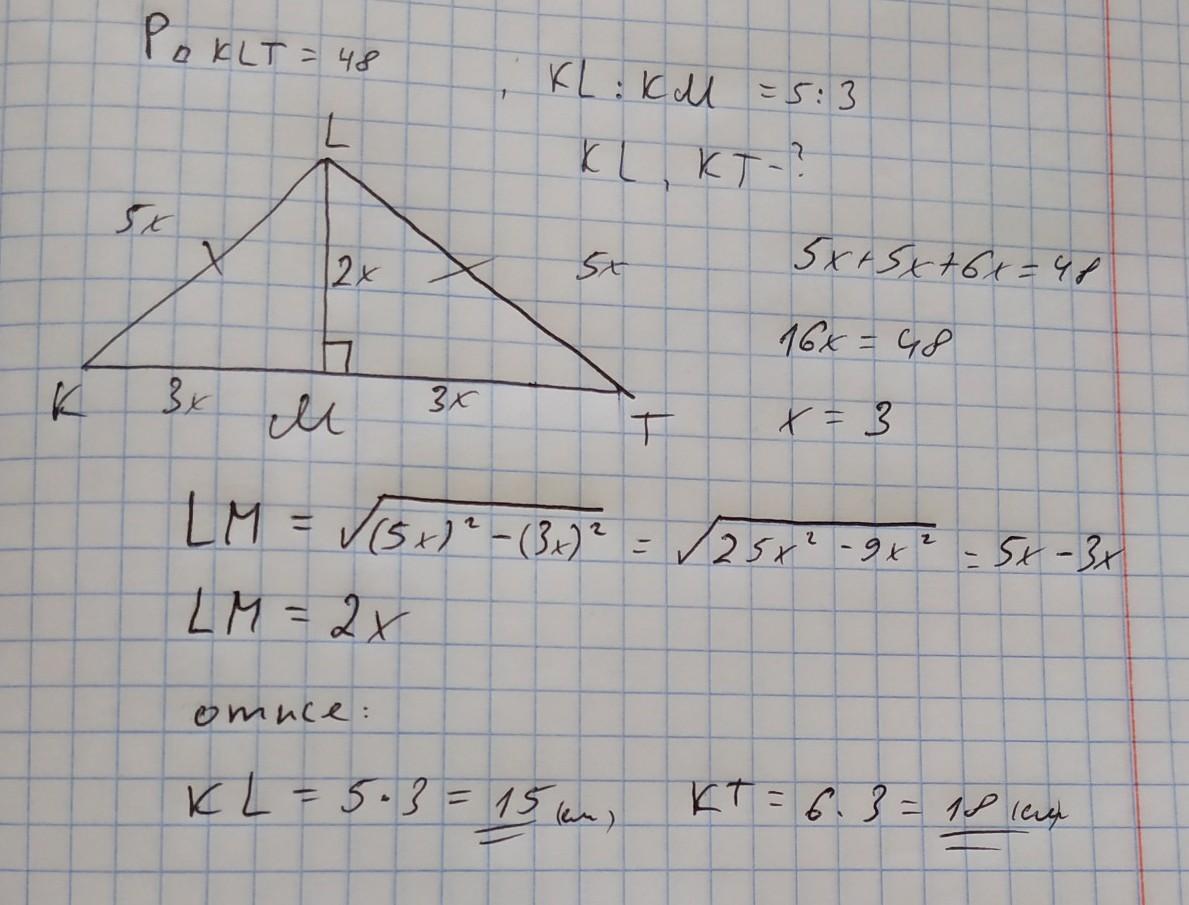 P△KLT = 48
, KL : KM = 5 : 3
KL, KT - ?
L
5x
2x
5x
K
3x
M
3x
T
5x+5x+6x=48
16x = 48
x = 3
LM = √(5x)² - (3x)² = √25x² - 9x² = 5x - 3x
LM = 2x
отже:
KL = 5 · 3 = 15 (см), KT = 6 · 3 = 18 (см)